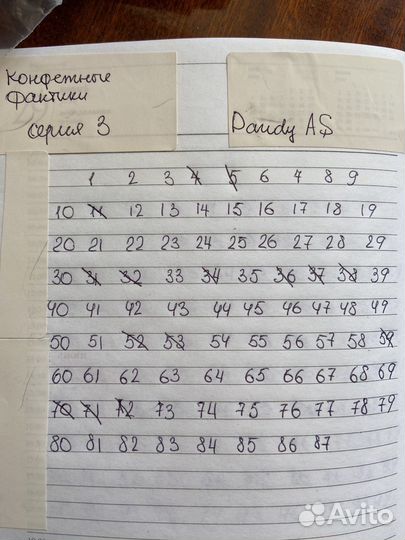 Конфетные
фантики
серия 3
Dandy A$
1 2 3 4 5 6 7 8 9
10 11 12 13 14 15 16 17 18 19
20 21 22 23 24 25 26 27 28 29
30 31 32 33 34 35 36 37 38 39
40 41 42 43 44 45 46 47 48 49
50 51 52 53 54 55 56 57 58 59
60 61 62 63 64 65 66 67 68 69
70 71 72 73 74 75 76 77 78 79
80 81 82 83 84 85 86 87
Avito